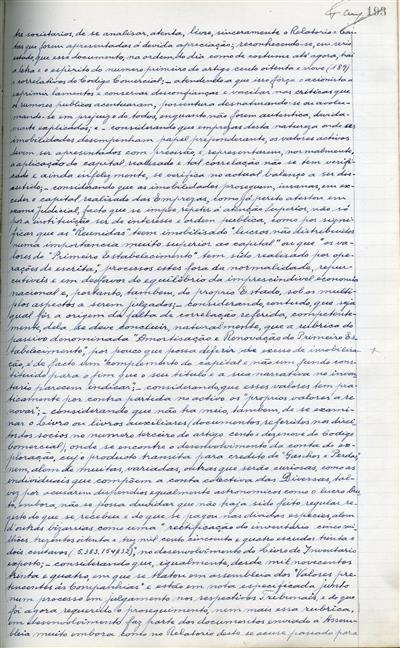 193
tre societarios, de se analisar, atenta, livre, sinceramente o Relatorio e Con-
tas que foram apresentados á devida apreciação; reconhecendo-se, em serie-
dade, que esse documento, na ordem do dia como de costume até agora, trai
a letra e o espirito do numero primeiro do artigo cento oitenta e nove (189)
e correlativos do Codigo Comercial; - atendendo a que isso força o accionista a
exprimir lamentos e conservar desconfianças e vacilar nas criticas que
os rumores publicos acentuaram, porventura desnaturando-se ou avolu-
mando-se em prejuizo de todos, enquanto não forem autentica, devida-
mente explicados; e - considerando que empresas desta natureza onde as
imobilidades desempenham papel preponderante, os valores activos
devem ser apresentados com precisão e representarem, normalmente,
a aplicação do capital realisado e tal correlação não se tem verifi-
cado e ainda infelizmente, se verifica no actual balanço a ser dis-
cutido; - considerando que as imobilidades proseguem, insanas, em ex-
ceder o capital realisado das Empresas, como já perito atestou em
exame judicial, facto que se impõe, repetir á atenção superior, não só
por a instituição ser de interesse e ordem publica, como por signi-
ficar que as "Reunidas" teem imobilisado "lucros não distribuidos
numa importancia muito superior ao capital" ou que "os va-
lores do "Primeiro Estabelecimento" tem sido realisado por ope-
rações de escrita;" processos estes fora da normalidade, reper-
cutiveis e em desfavor do equilibrio da imprescindivel economia
nacional e, portanto, tambem, do proprio Estado, sob os multi-
plos aspectos a serem julgados; - considerando, contudo, que seja
qual for a origem da falta de correlação referida, competente-
mente, dela se deve concluir, naturalmente, que a rubrica do
passivo denominada "Amortisação e Renovação do Primeiro Es-
tabelecimento", por pouco que possa deferir do excesso de imobiliza-
ção, é de facto um complemento do capital e não um fundo cons-
tituido para o fim que o seu titulo e a sua narrativa no inven-
tario parecem indicar; - considerando, que esses valores tem pra-
ticamente por contra partida no activo os "proprios valores a re-
novar"; - considerando que não ha meio, tambem, de se exami-
nar o livro ou livros auxiliares (documentos referidos nos direi-
tos dos socios no numero terceiro do artigo cento e dezenove do Codigo
Comercial), onde se encontre o desenvolvimento da conta de ex-
ploração, cujo producto transita para credito de "Ganhos e Perdas"
nem, alem de muitas, variadas, outras que serão curiosas, como as
individuais que compõem a conta colectiva das Diversas, tal-
vez por acusarem dispendios egualmente astronomicos como o lucro bru-
to, embora, não se possa duvidar que não haja sido feito regular re-
gisto do que se recebeu e do que se pagou nas diversas especies, alem
d'outras bizarrias como uma "rectificação do inventario cinco mi-
lhões, trezentos oitenta e tres mil, cento cincoenta e quatro escudos trinta e
dois centavos (5.383.154$32);" no desenvolvimento do Livro de Inventario
exposto; - considerando que, igualmente, desde mil novecentos
trinta e quatro, em que se tratou em assembleia dos "Valores per-
tencentes ás Companhias" e estão em nota especificada junto
num processo em julgamento nos respectivos Tribunais, e do que
foi agora requerido o proseguimento, nem mais essa rubrica,
em desenvolvimento faz parte dos documentos enviado á Assem-
bleia muito embora como no Relatorio deste se acuse passado para